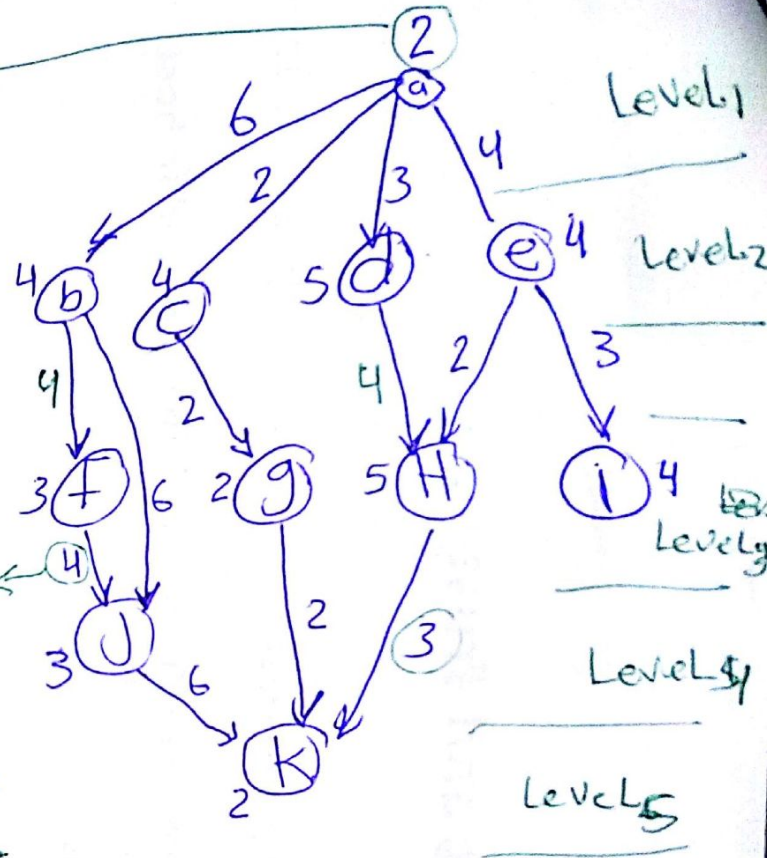 2
a
Level.1
6
2
3
4
4 b
4
c
5 d
e 4
Level.2
4
2
4
2
3
3 f
6
2 g
5 H
i 4
4
Level
3 J
6
2
3
Level
k
2
Level 5